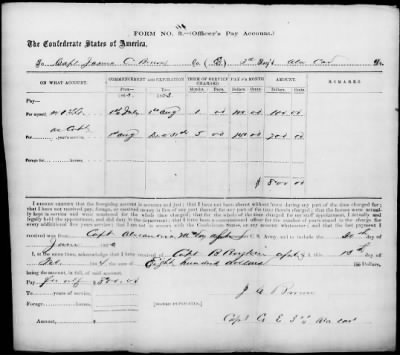 FORM No. 3.—(Officer's Pay Account.)
The Confederate States of America,
To Capt. James C. Co. (E) 3rd Reg't Ala Cav Dr.
ON WHAT ACCOUNT. COMMENCEMENT AND EXPIRATION. TERM OF SERVICE CHARGED. PAY PER MONTH. AMOUNT. REMARKS.
From— To— Months. Days. Dollars. Cents. Dollars. Cts.
Pay—
For myself, 1st July 1st Aug 1 00 140 00 100 00
1st Aug Dec 31st 5 00 140 00 700 00
Forage for horses,
$ 800 00
I HEREBY CERTIFY that the foregoing account is accurate and just; that I have not been absent without leave during any part of the time charged for; that I have not received pay, forage, or received money in lieu of any part thereof, for any part of the time therein charged; that the horses were actually kept in service and were mustered for the whole time charged; that for the whole time charged for my staff appointment, I actually and legally held the appointment, and did duty in the department; that I have been a commissioned officer for the number of years stated in the charge for every additional five years' service; that I am not in arrears with the Confederate States, on any account whatsoever; and that the last payment I
received was from Capt. C. S. Army, and to include the 30th day of
June 186
I, at the same time, acknowledge that I have received of Capt B this 18th day of
Feb. 1864 the sum of Eight hundred dollars Dollars,
being the amount, in full of said account.
Pay $800.00
To years of service,
Forage
Amount, $
[SIGNED DUPLICATES.]
Capt Co E 3rd Ala Cav